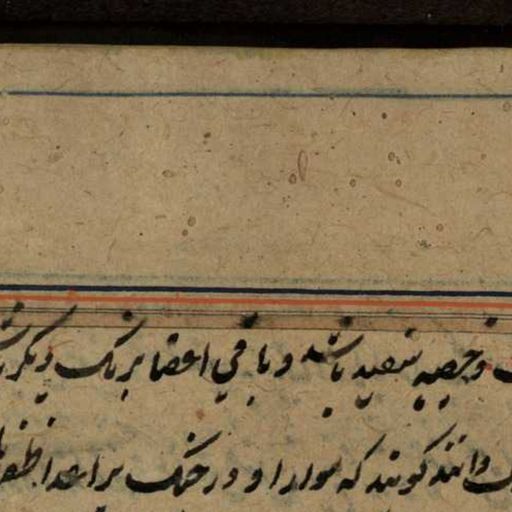 و خصیه سفید باشد و باقی اعضا برنک دیکر
دانند کویند که سوار او در جنک بر اعدا ظفر